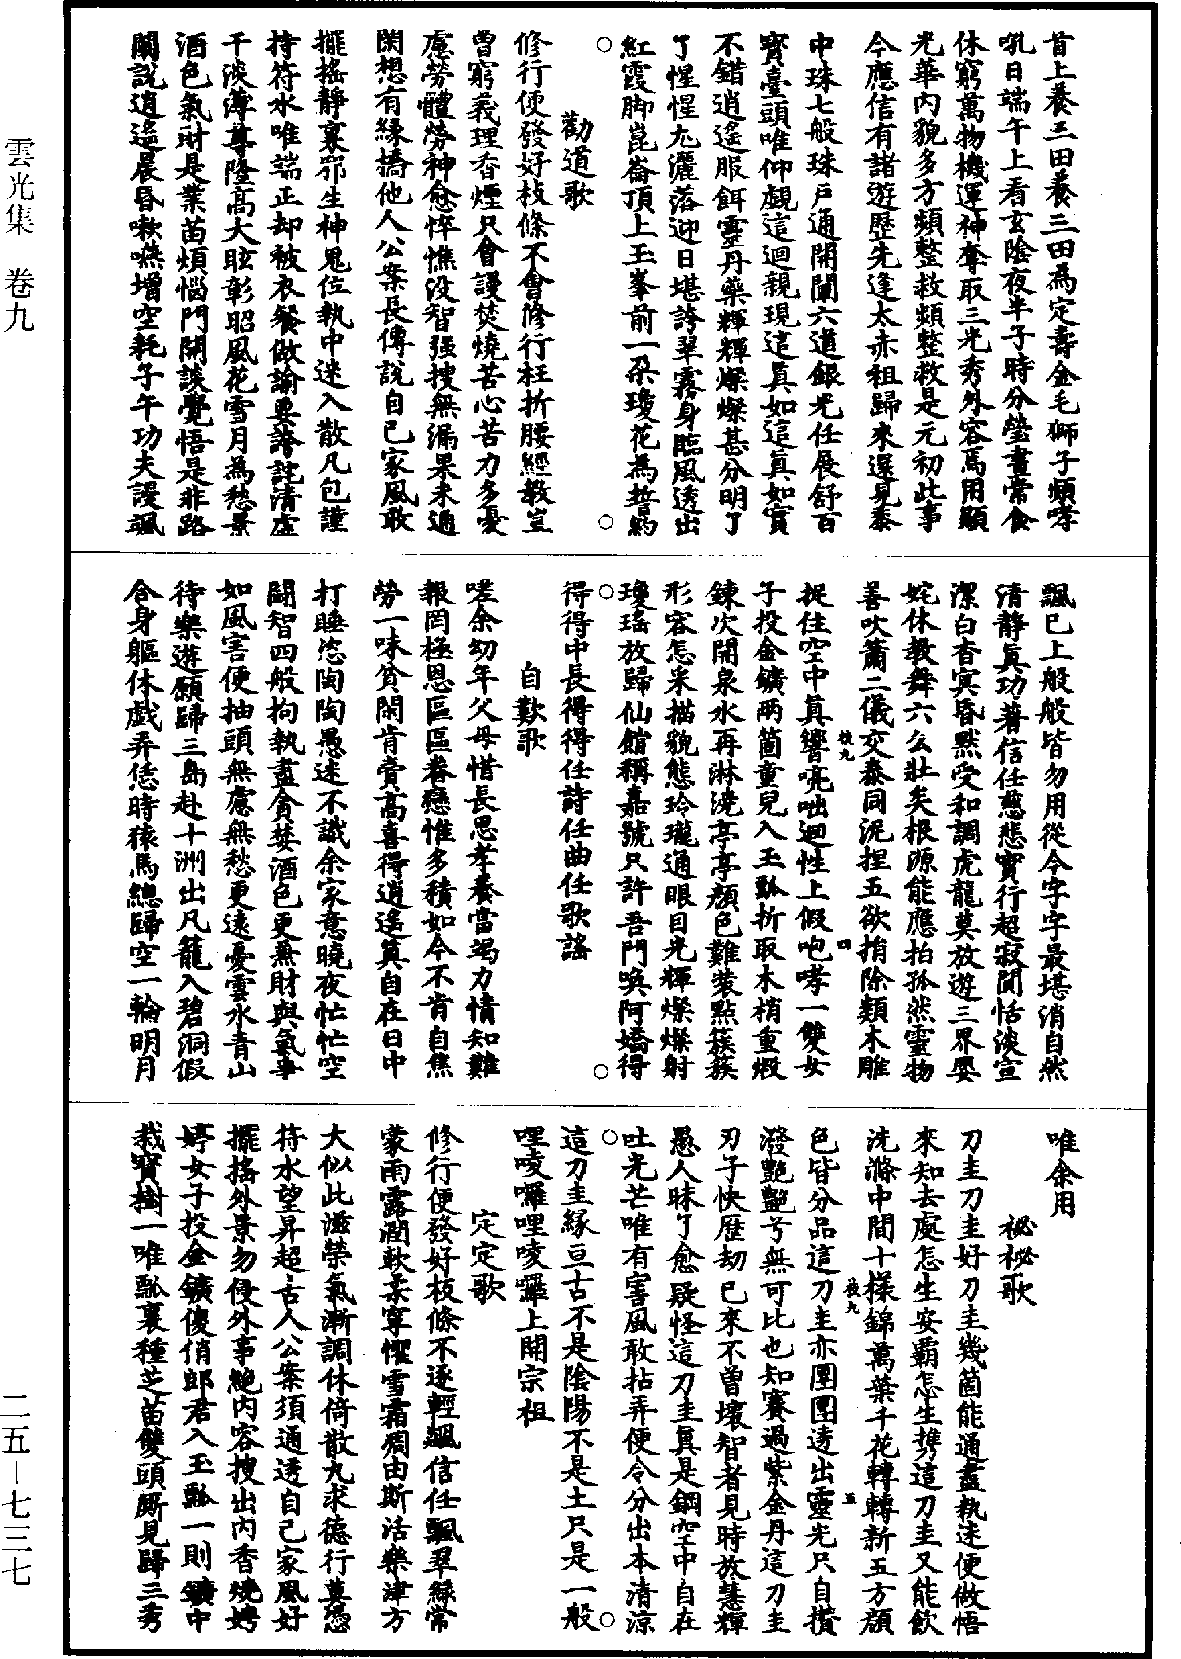 雲光集 卷九
二五－七三七
首上養三田養三田爲定壽金毛獅子頻哮
吼日端午上看玄陰夜半子時分瑩晝常食
休窮萬物機運神奪取三光秀外容焉用顯
光華內貌多方頻整救頻整救是元初此事
今應信有諸遊歷先逢太赤祖歸來還見泰
中珠七般珠戶通開闡六道銀光任展舒百
寶臺頭唯仰覷這迴親現這眞如這眞如實
不錯逍遙服餌靈丹藥輝輝燦燦甚分明了
了惺惺尤灑落迎日堪誇翠霧身臨風透出
紅霞脚崑崙頂上玉峯前一朵瓊花爲誓約
勸道歌
修行便發好枝條不會修行枉折腰經教豈
曾窮義理香煙只會謾焚燒苦心苦力多憂
慮勞體勞神愈悴憔没智强搜無漏果未通
閑想有緣橋他人公案長傳說自己家風敢
擺搖靜裏邪生神鬼位執中迷入散凡包謹
持符水唯端正却被衣餐做諭要誇詫清虛
千淡薄尊隆高大眩彰昭風花雪月爲愁景
酒色氣財是業苗煩惱門開談覺悟是非路
闊說逍遙晨昏嗽嚥增空耗子午功夫謾颯
飄已上般般皆勿用從今字字最堪消自然
清靜眞功著信任慈悲實行超寂閴恬淡宣
潔白杳冥昏默受和調虎龍莫放遊三界嬰
姹休教舞六么壯矣根源能應拍孤然靈物
善吹簫二儀交泰同泥捏五欲捎除類木雕
捉住空中眞響喨咄迴性上假咆哮一雙女
子投金鑛兩箇童兒入玉瓢折取木梢重煅
鍊次開泉水再淋澆亭亭顔色難裝點簇簇
形容怎采描貌態玲瓏通眼目光輝燦燦射
瓊瑤放歸仙舘稱嘉號只許吾門喚阿嬌得
得得中長得得得任詩任曲任歌謠
自歎歌
嗟余幼年父母惜長思孝養當竭力情知難
報罔極恩區區眷戀惟多積如今不肯自焦
勞一味貧閑肯賣高喜得逍遙眞自在日中
打睡恣陶陶愚迷不識余家意曉夜忙忙空
鬭智四般拘執盡貪婪酒色更兼財與氣爭
如風害便抽頭無慮無愁更遠憂雲水青山
待樂遊願歸三島赴十洲出凡籠入碧洞假
合身軀休戲弄恁時猿馬總歸空一輪明月
唯余用
祕祕歌
刀圭刀圭好刀圭幾箇能通盡執迷便做悟
來知去處怎生安霸怎生攜這刀圭又能飲
洗滌中間十樣錦萬葉千花轉轉新五方顔
色皆分品這刀圭亦團團透出靈光只自攢
潑艷艷兮無可比也知賽過紫金丹這刀圭
刃子快歷劫已來不曾壞智者見時放慧輝
愚人昧了愈疑怪這刀圭眞是鋼空中自在
吐光芒唯有害風敢拈弄便令分出本清涼
這刀圭緣亘古不是陰陽不是土只是一般
哩㖫囉哩㖫囉上開宗祖
定定歌
修行便發好枝條不逐輕飄信任飄翠綠常
蒙雨露潤軟柔寧懼雪霜凋由斯活樂津方
大似此滋榮氣漸調休倚散丸求德行莫憑
符水望昇超古人公案須通透自己家風好
擺搖外景勿侵外事絶內容搜出內香燒娉
婷女子投金鑛傻俏郎君入玉瓢一則鑛中
栽寶樹一唯瓢裏種芝苗雙頭厮見歸三秀